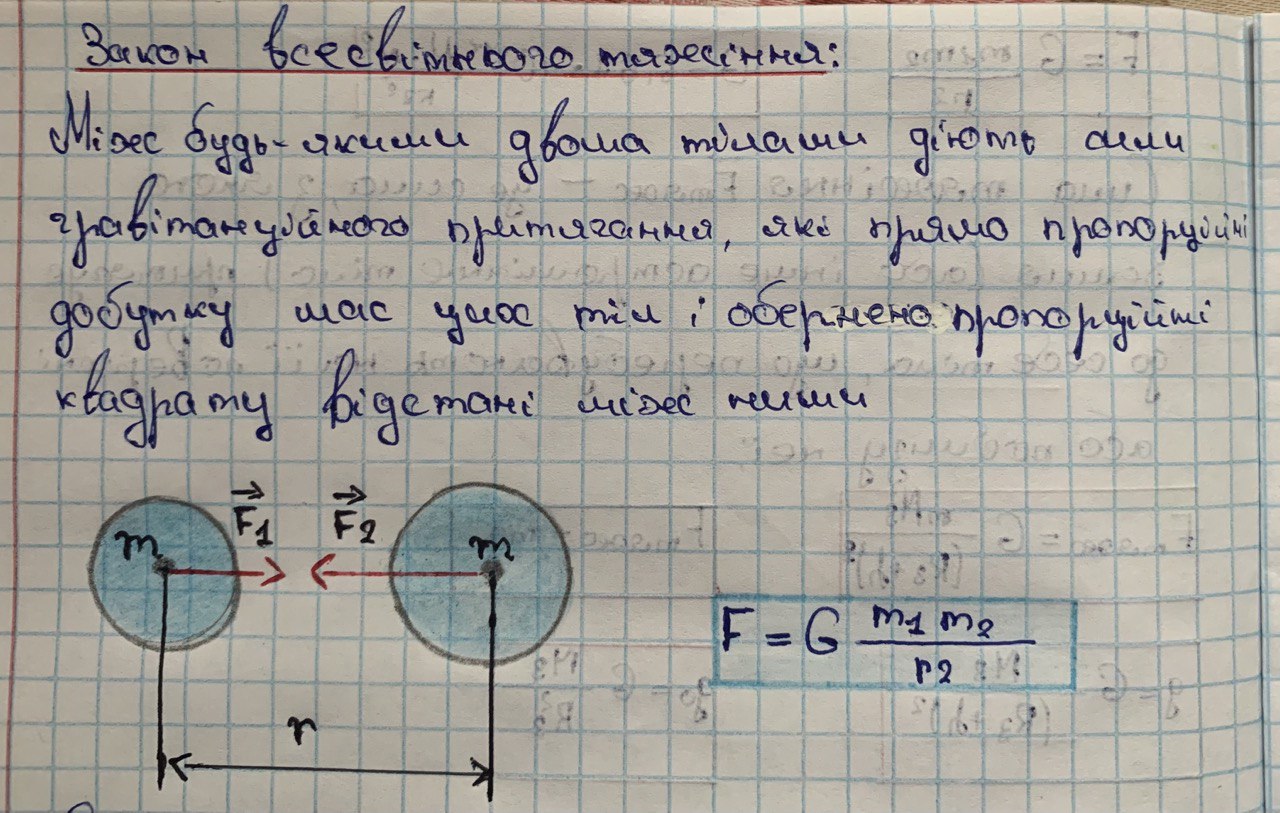 Закон всесвітнього тяжіння:
Між будь-якими двома тілами діють сили
гравітанційного притягання, які прямо пропорційні
добутку мас цих тіл і обернено пропорційні
квадрату відстані міжі ними
m F₁ F₂ m
F = G m₁ m₂ / r2
r